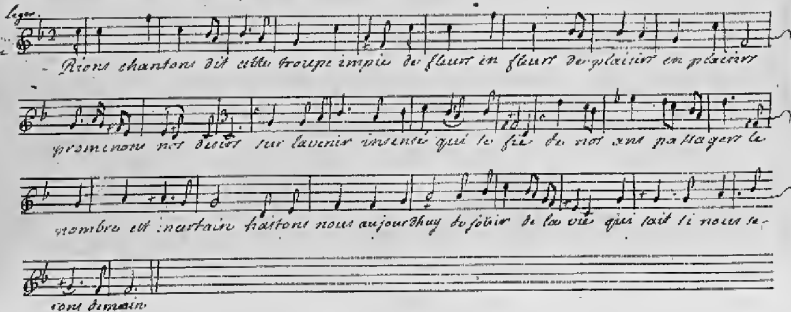 Leger.
Rions chantons dit cette troupe impie de fleurs en fleurs de plaisirs en plaisirs
promenons nos desirs sur lavenir insensé qui se fie de nos ans passagers le
nombre est incertain hastons nous aujourdhuy de joüir de la vie qui sait si nous se-
rons demain